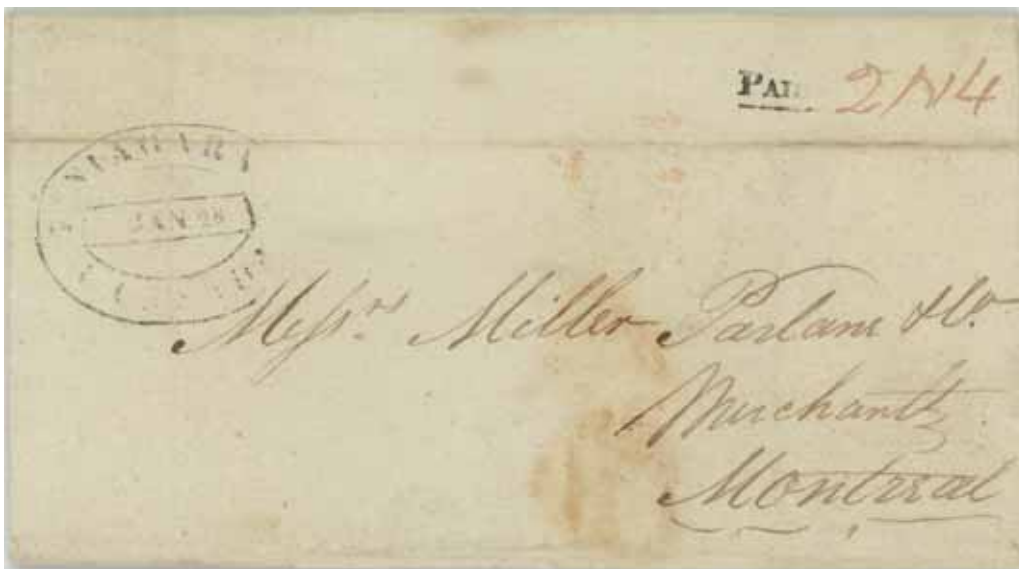 PAID 2/N4
NIAGARA
JAN 28
Messrs. Miller Parlane & Co.
Merchants
Montreal